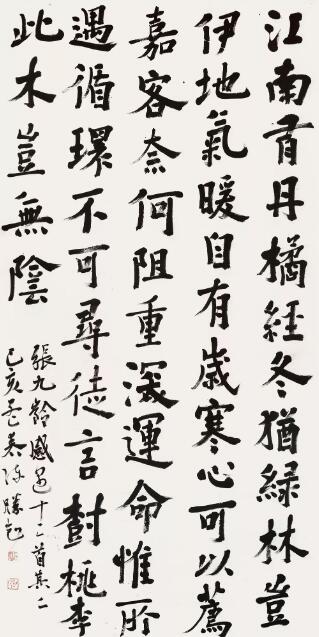 江南有丹橘經冬猶緑林豈
伊地氣暖自有歲寒心可以薦
嘉客奈何阻重深運命惟所
遇循環不可尋徒言樹桃李
此木豈無陰
張九齡感遇十二首其二
己亥孟春